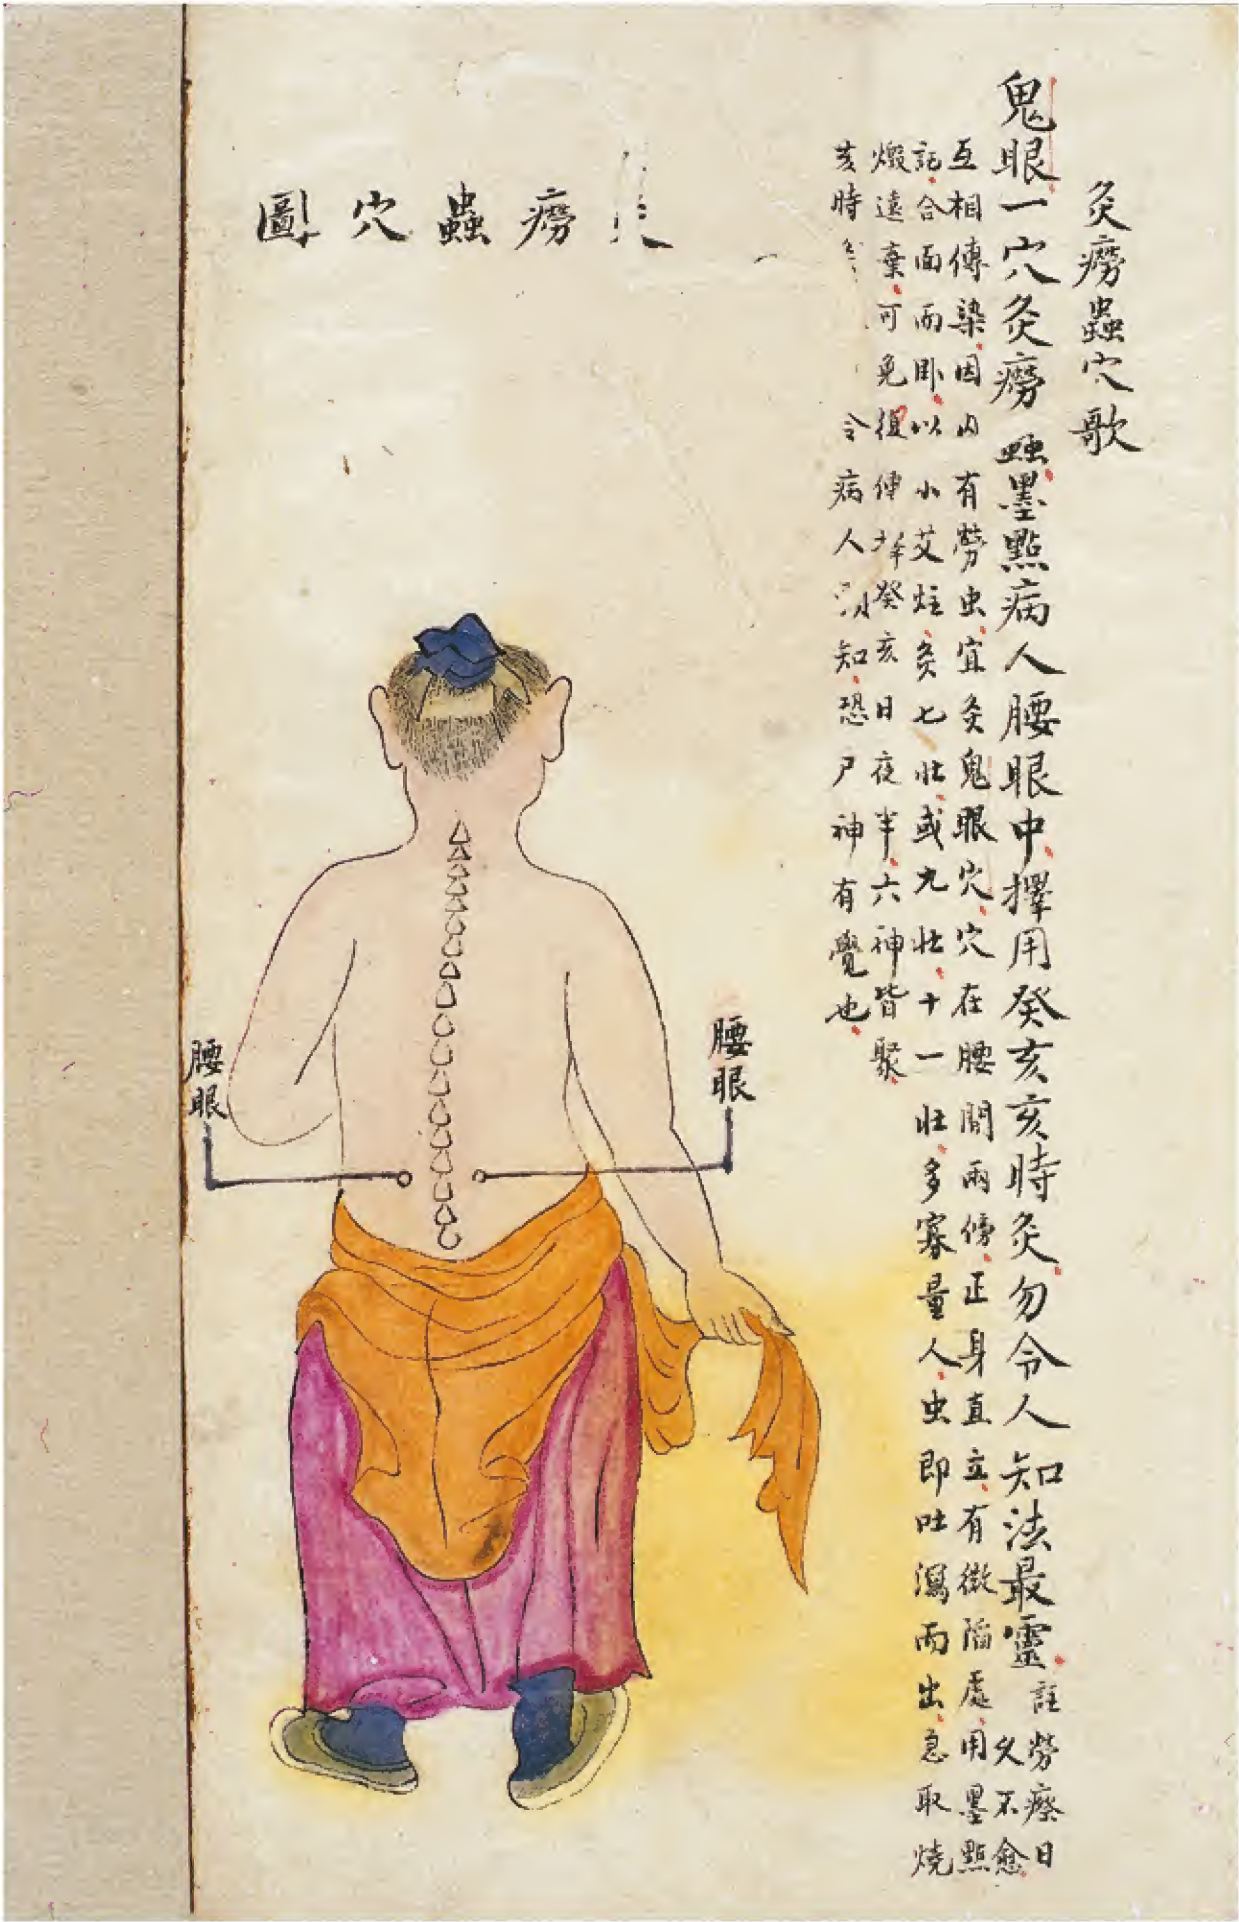 灸癆蟲穴歌
鬼眼一穴灸癆蟲墨點病人腰眼中擇用癸亥亥時灸勿令人知法最靈
註勞瘵日
久不愈
互相傳染因內有勞虫宜灸鬼眼穴穴在腰間兩傍正身直立有微陷處用墨點
記合面而卧以小艾炷灸七壯或九壯十一壯多寡量人虫即吐瀉而出急取燒
燬遠棄可免復傳擇癸亥日夜半六神皆聚
亥時 令病人 知恐尸神有覺也
癆蟲穴圖
腰眼
腰眼